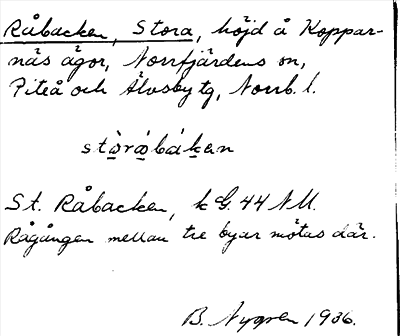 Råbacken, Stora, höjd å Koppar-
näs ägor, Norrfjärdens sn,
Piteå och Älvsby tg, Norrb. l.
stòrǻbákan
St. Råbacken, k G. 44 NU.
Rågången mellan tre byar mötas där.
B. Nygren 1936.